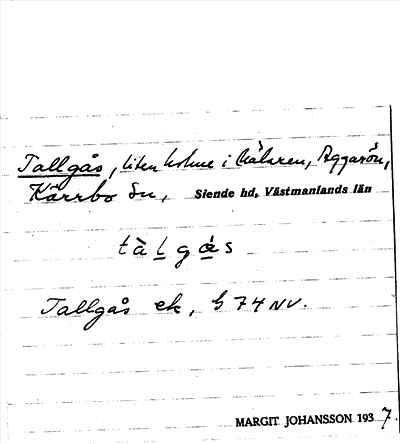 Tallgås, liten holme i Mälaren, Aggarön,
Kärrbo sn, Siende hd, Västmanlands län
tàlgás
Tallgås ek, S 74 NV.
MARGIT JOHANSSON 1937.